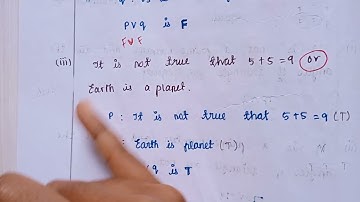 p v q is F
F v F
(iii) It is not true that 5+5=9 or
Earth is a planet.
P : It is not true that 5+5=9 (T)
: Earth is planet (T)
q is T